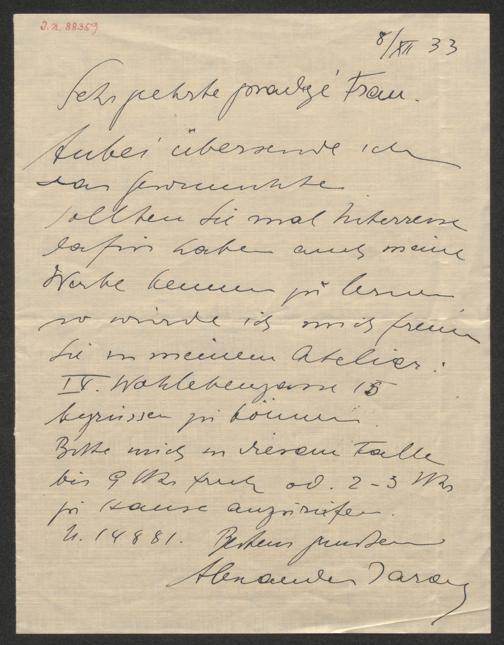 J.N. 88359
8/XII 33
Sehr geehrte gnädige Frau.
Anbei übersende ich
das Gewünschte
sollten Sie mal Interesse
dafür haben auch meine
Werke kennen zu lernen
so würde ich mich freuen
Sie in meinem Atelier:
IV. Wohllebengasse 15
begrüssen zu können.
Bitte mich in diesem Falle
bis 9 Uhr früh od. 2-3 Uhr
zu Hause anzurufen.
U. 14881. Bestens grüssend
Alexander